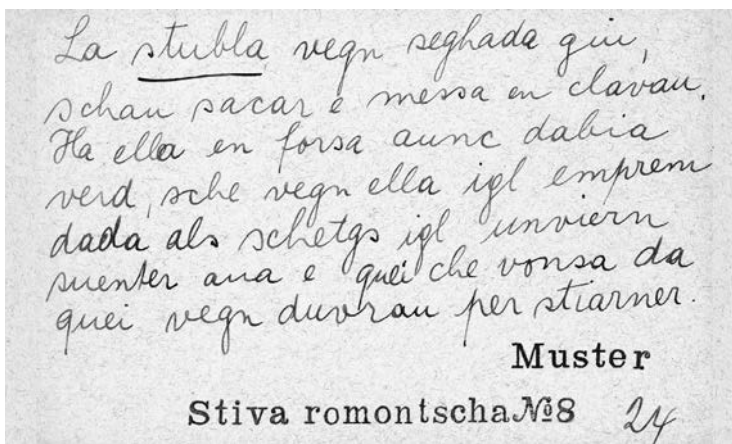 La stubla vegn seghada giu,
schau sacar e messa en clavau.
Ha ella en forsa aunc dabia
verd, sche vegn ella igl emprem
dada als schetgs igl unviern
suenter aua e quei che vonsa da
quei vegn duvrau per stiarner.
Muster
Stiva romontscha №8 24